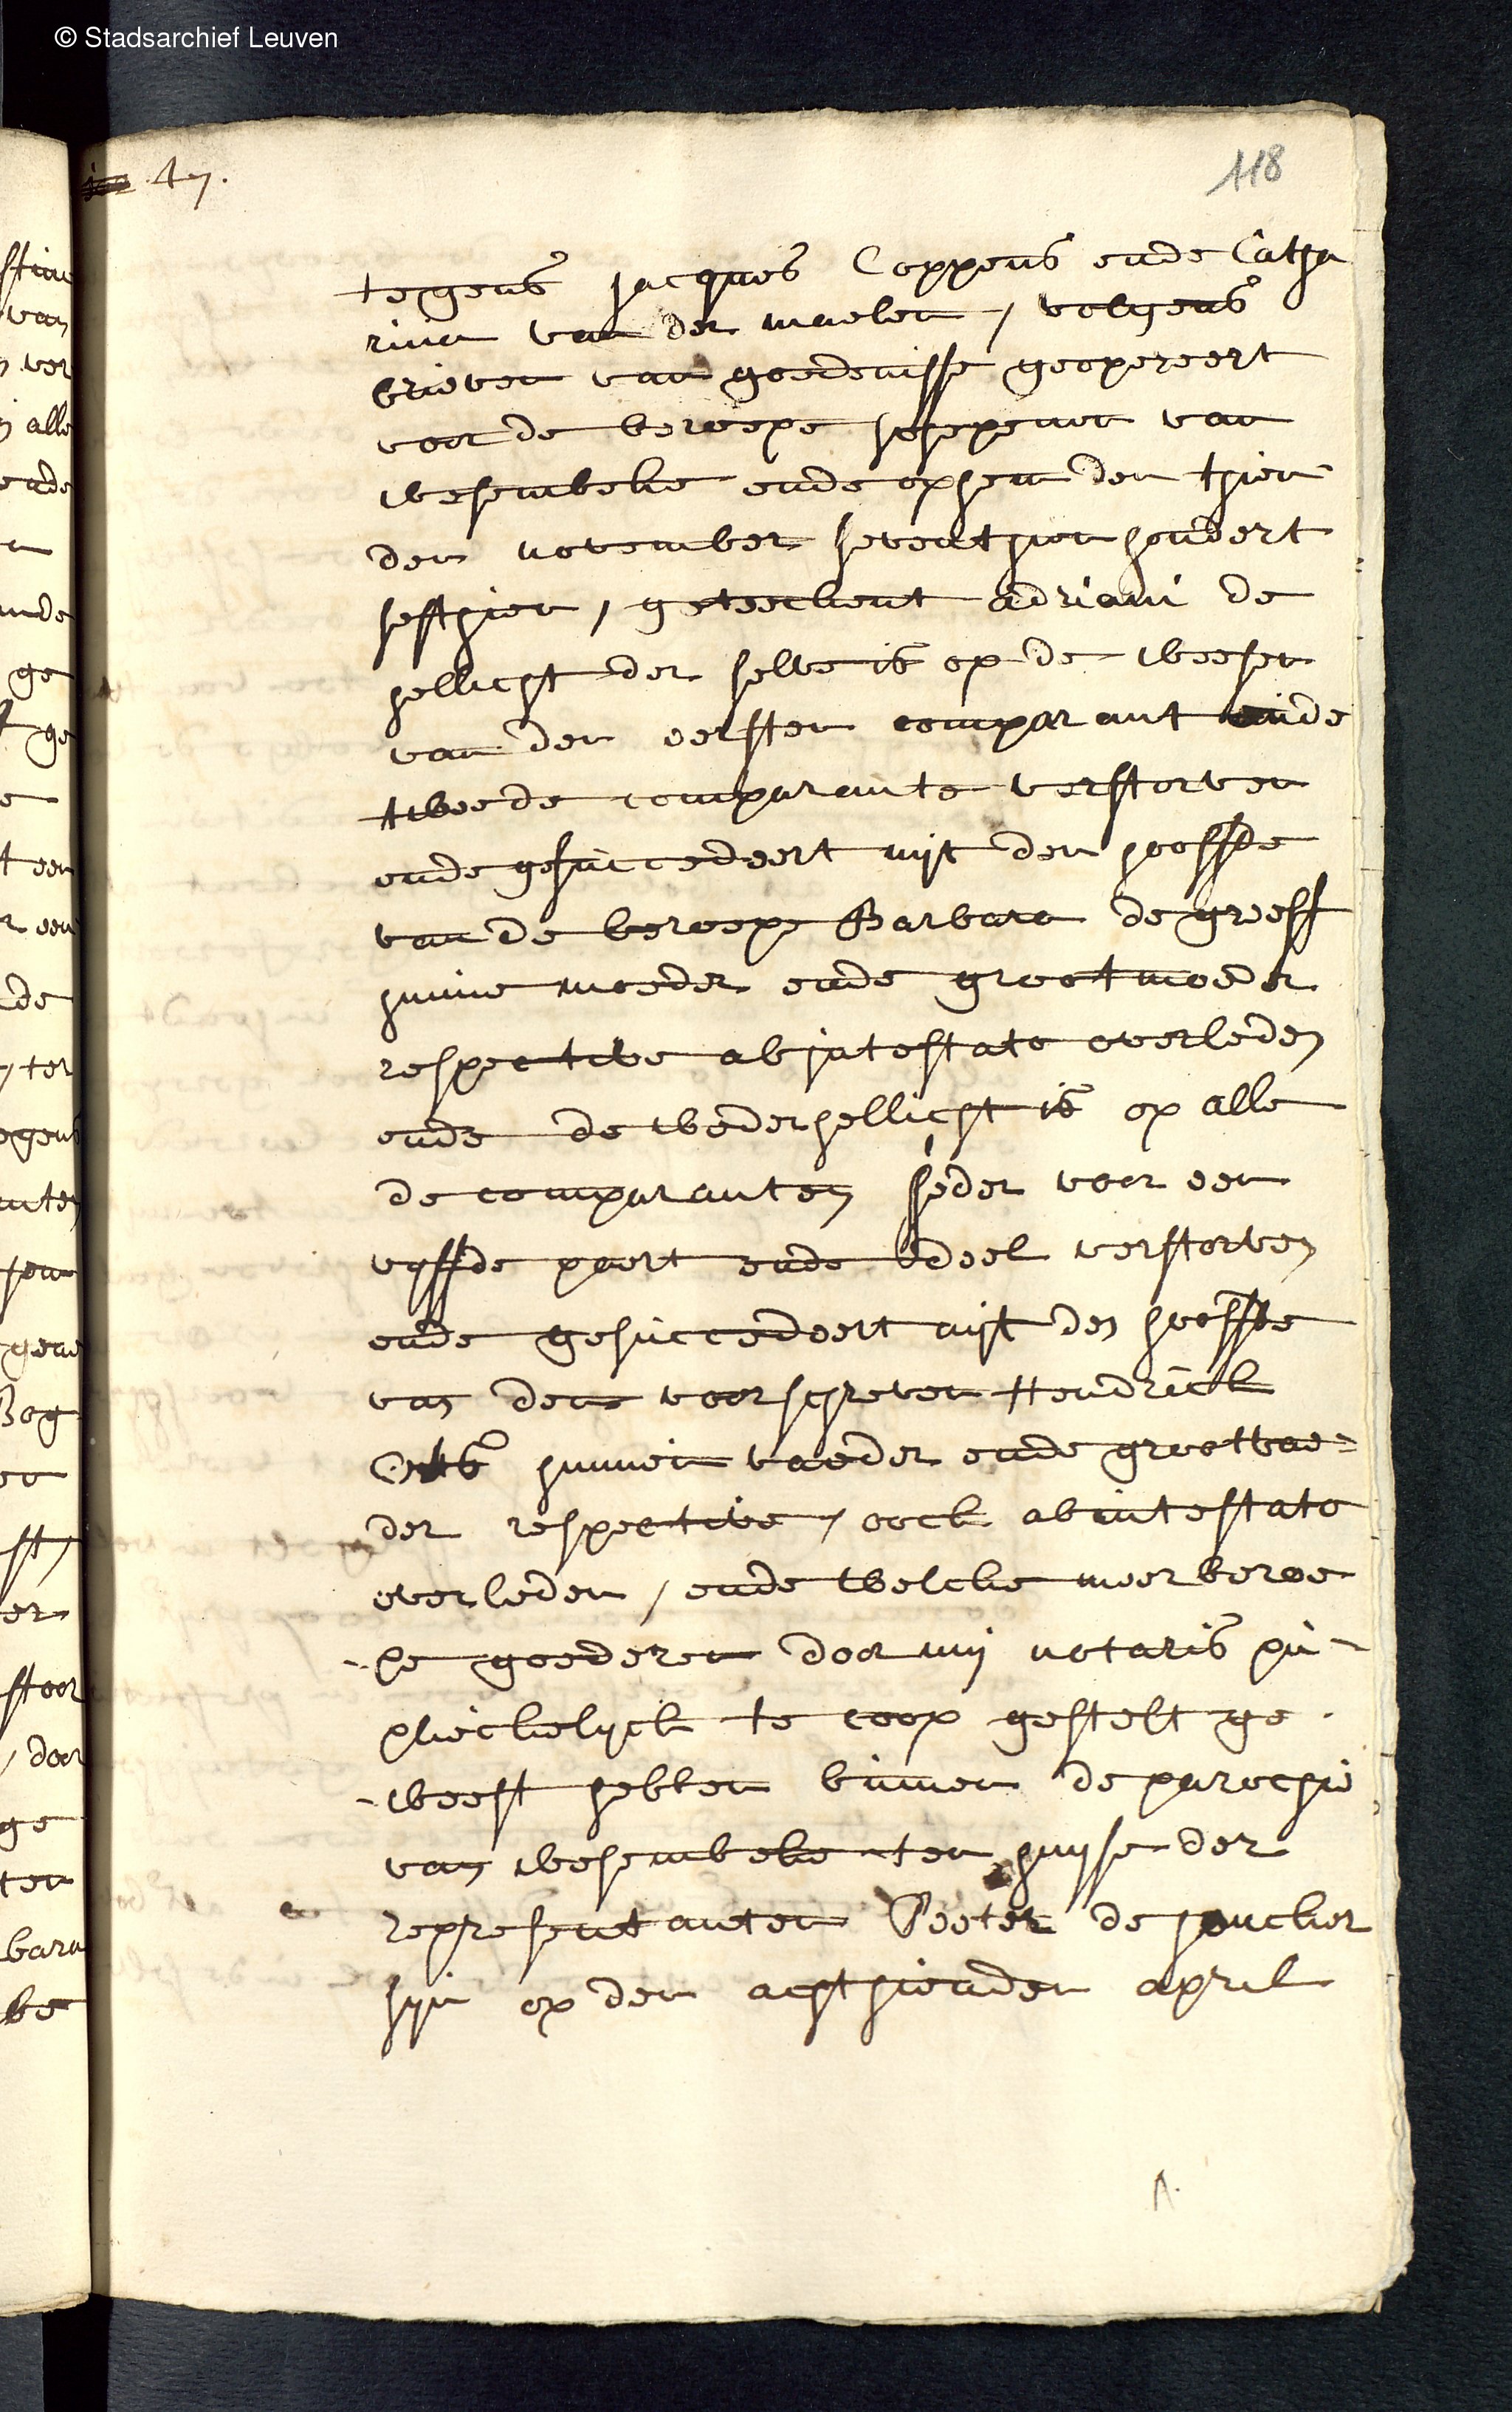 © Stadsarchief Leuven
47.
118
tegens Jacques Coppens ende Catha
rina van der maelen / volgens
brieven van goedenisse geopereert
voor de beroepe schepenen van
wesembeke ende ophem den thien
den november seventhien hondert
sesthien / geteeckent adriani de
hellicht der selve is op de weesen
van den eersten comparant ende
tweede comparante verstorven
ende gesuccedeert uijt den hooffde
van de beroepe Barbara de greeff
hunne moeder ende grootmoeder
respective abintestato overleden
ende de wederhellicht is op alle
de comparanten ieder voor een
vyffde paert ende deel verstorven
ende gesuccedeert uijt den hooffde
van den voorschreven Hendrick
hunnen vaeder ende grootvae=
der respective / oock abintestato
overleden / ende welcke meerberoe
pe goederen door mij notaris pu-
plieckelyck te coop gestelt ge
weest hebben binnen de parochie
van wesembeke ten huyse der
representanten Peeter de joncker
syn op den achthienden april
A.